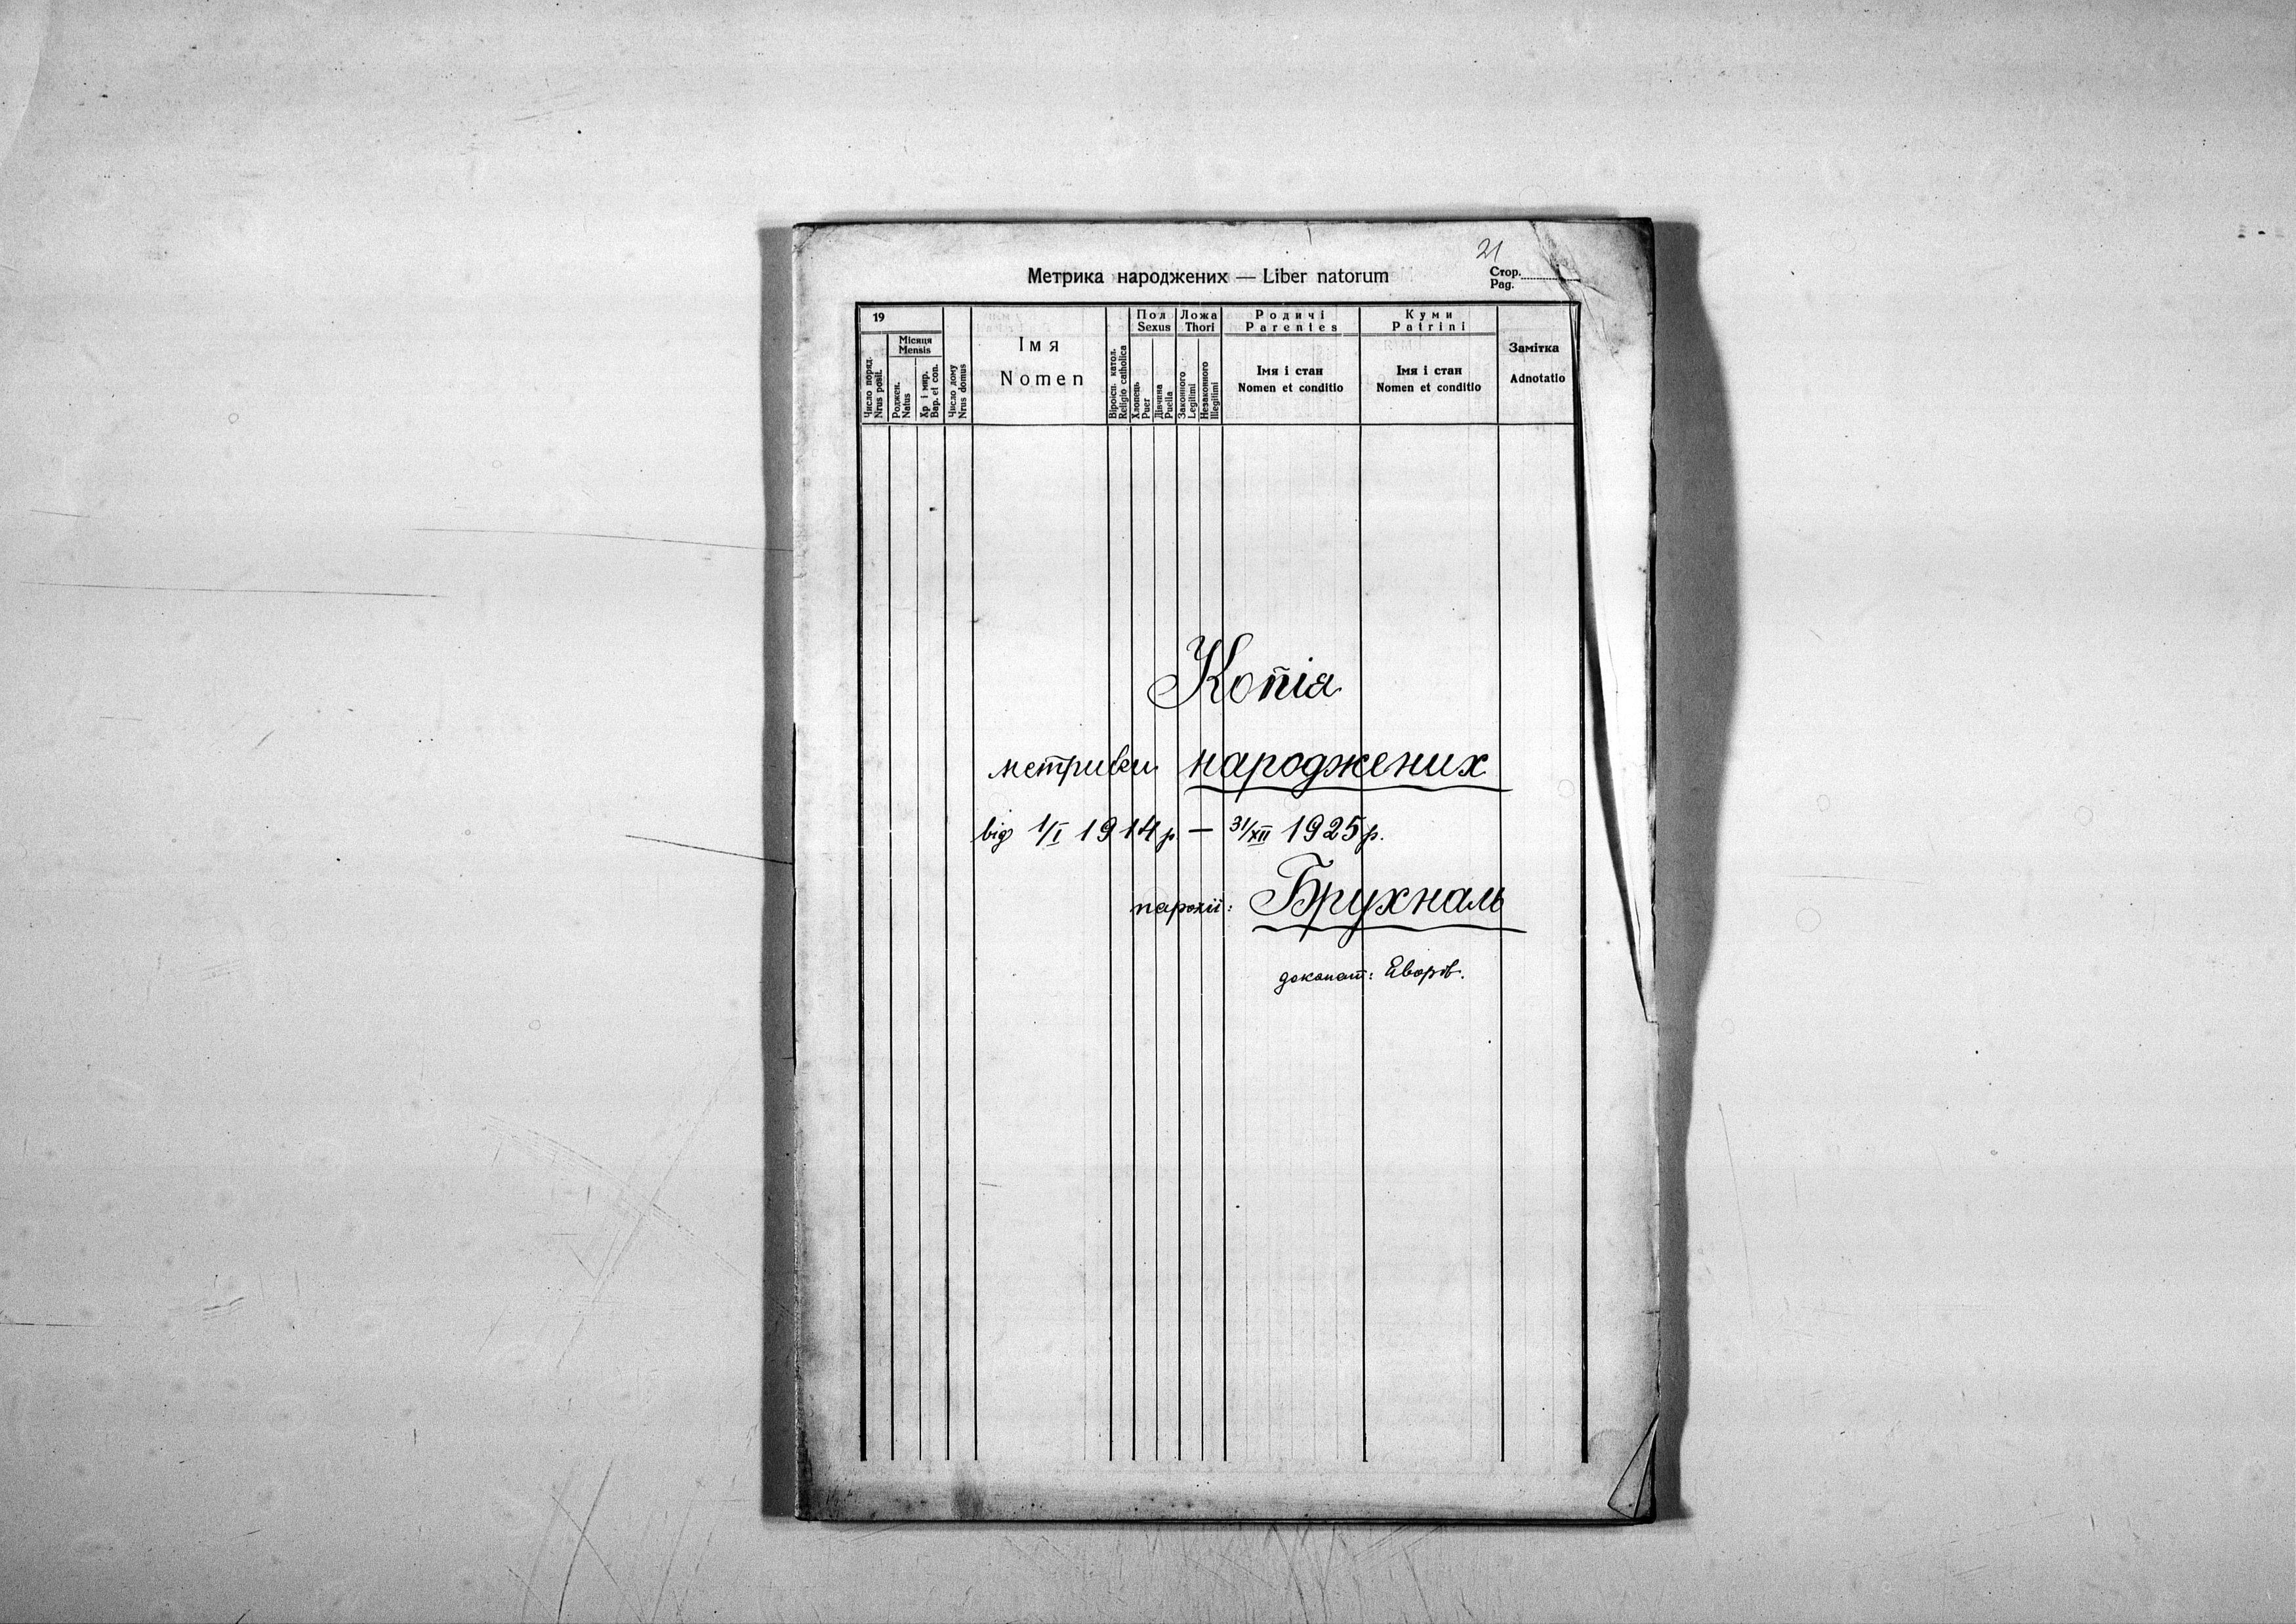 21
Метрика народжених — Liber natorum
Стор.
Pag.
19
Число поряд.
Nrus posit.
Місяця
Mensis
Роджен.
Natus
Хр. і мир.
Bap. et con.
Число дому
Nrus domus
Імя
Nomen
Віроісп. катол.
Religio catholica
Пол
Sexus
Хлопець
Puer
Дівчина
Puella
Ложа
Thori
Законного
Legitimi
Незаконного
Illegitimi
Родичі
Parentes
Імя і стан
Nomen et conditio
Куми
Patrini
Імя і стан
Nomen et conditio
Замітка
Adnotatio
Копія
метрики народжених
від 1/I 1914 р. — 31/XII 1925 р.
парохії: Брухналь
деканат: Яворів.